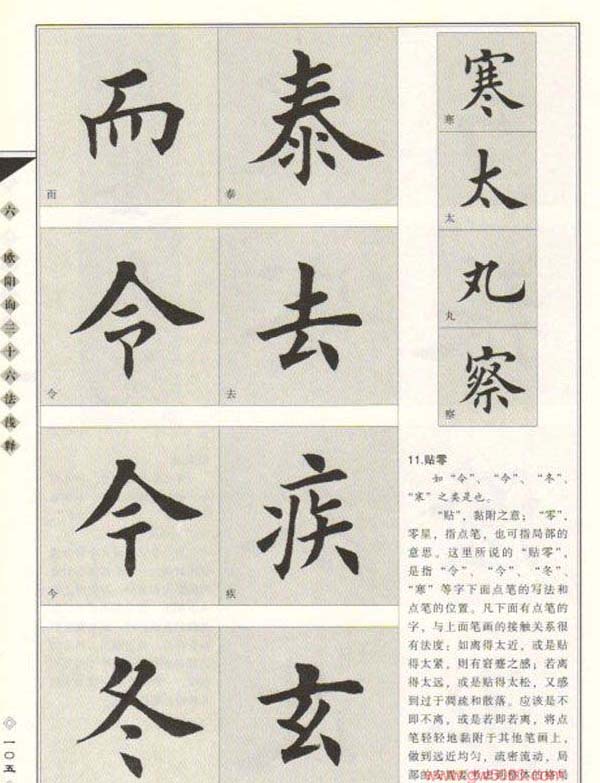 六 欧阳询三十六法浅释
一〇五
而
而
泰
泰
令
令
去
去
今
今
疾
疾
冬
玄
寒
寒
太
太
丸
丸
察
察
11.贴零
如“令”、“今”、“冬”、
“寒”之类是也。
“贴”，黏附之意；“零”，
零星，指点笔，也可指局部的
意思。这里所说的“贴零”，
是指“令”、“今”、“冬”、
“寒”等字下面点笔的写法和
点笔的位置。凡下面有点笔的
字，与上面笔画的接触关系很
有法度：如离得太近，或是贴
得太紧，则有窘蹙之感；若离
得太远，或是贴得太松，又感
到过于凋疏和散落。应该是不
即不离，或是若即若离，将点
笔轻轻地黏附于其他笔画上，
做到远近均匀，疏密流动，局